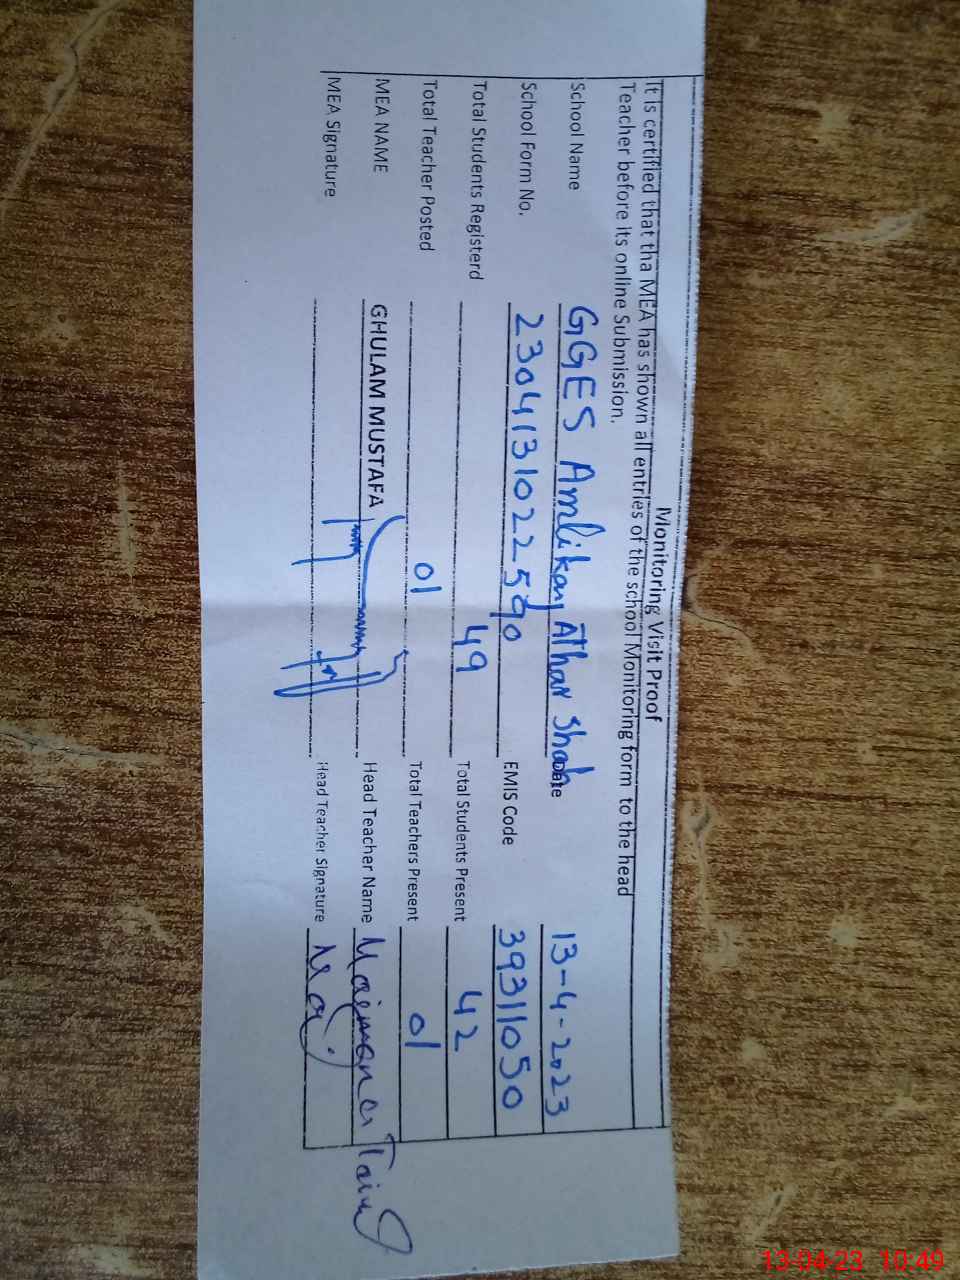 Monitoring Visit Proof
It is certified that tha MEA has shown all entries of the school Monitoring form to the head
Teacher before its online Submission.
School Name GGES Amlikay Athar Shah Date 13-4-2023
School Form No. 2304131022590 EMIS Code 39311050
Total Students Registerd 49 Total Students Present 42
Total Teacher Posted 01 Total Teachers Present 01
MEA NAME GHULAM MUSTAFA Head Teacher Name Maimona
MEA Signature Head Teacher Signature
13-04-23 10:49